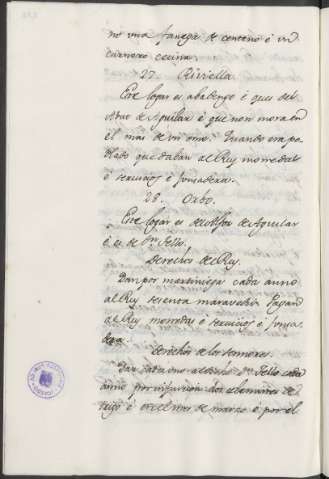 no una fanega de centeno é un
carnero cecina.
27. Riviella.
Este logar es abadengo é ques del
Abat de Aguilar é que non mora en
él mas de un ome. Quando era po-
blado que daban al Rey monedas
é servicios é fonsadera.
28. Orbo.
Este logar es de obispo de Aguilar
é es de Dn. Tello.
Derechos del Rey.
Dan por martiniega cada anno
al Rey sesenta maravedis. Pagan
al Rey monedas é servicios é fonsa-
dera.
Derechos de los sennores.
Dan cada uno al dicho Dn. Tello cada
anno por infurcion dos celemines de
trigo é en el mes de marzo é por el